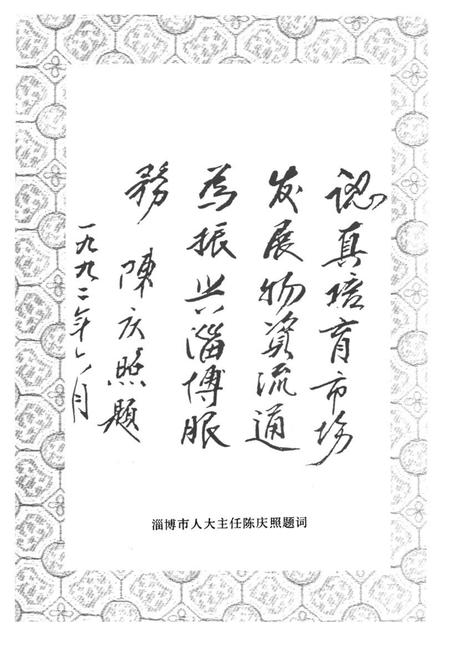 認真培育市场
发展物資流通
为振兴淄博服
務
陳庆照題
一九九二年八月
淄博市人大主任陈庆照题词